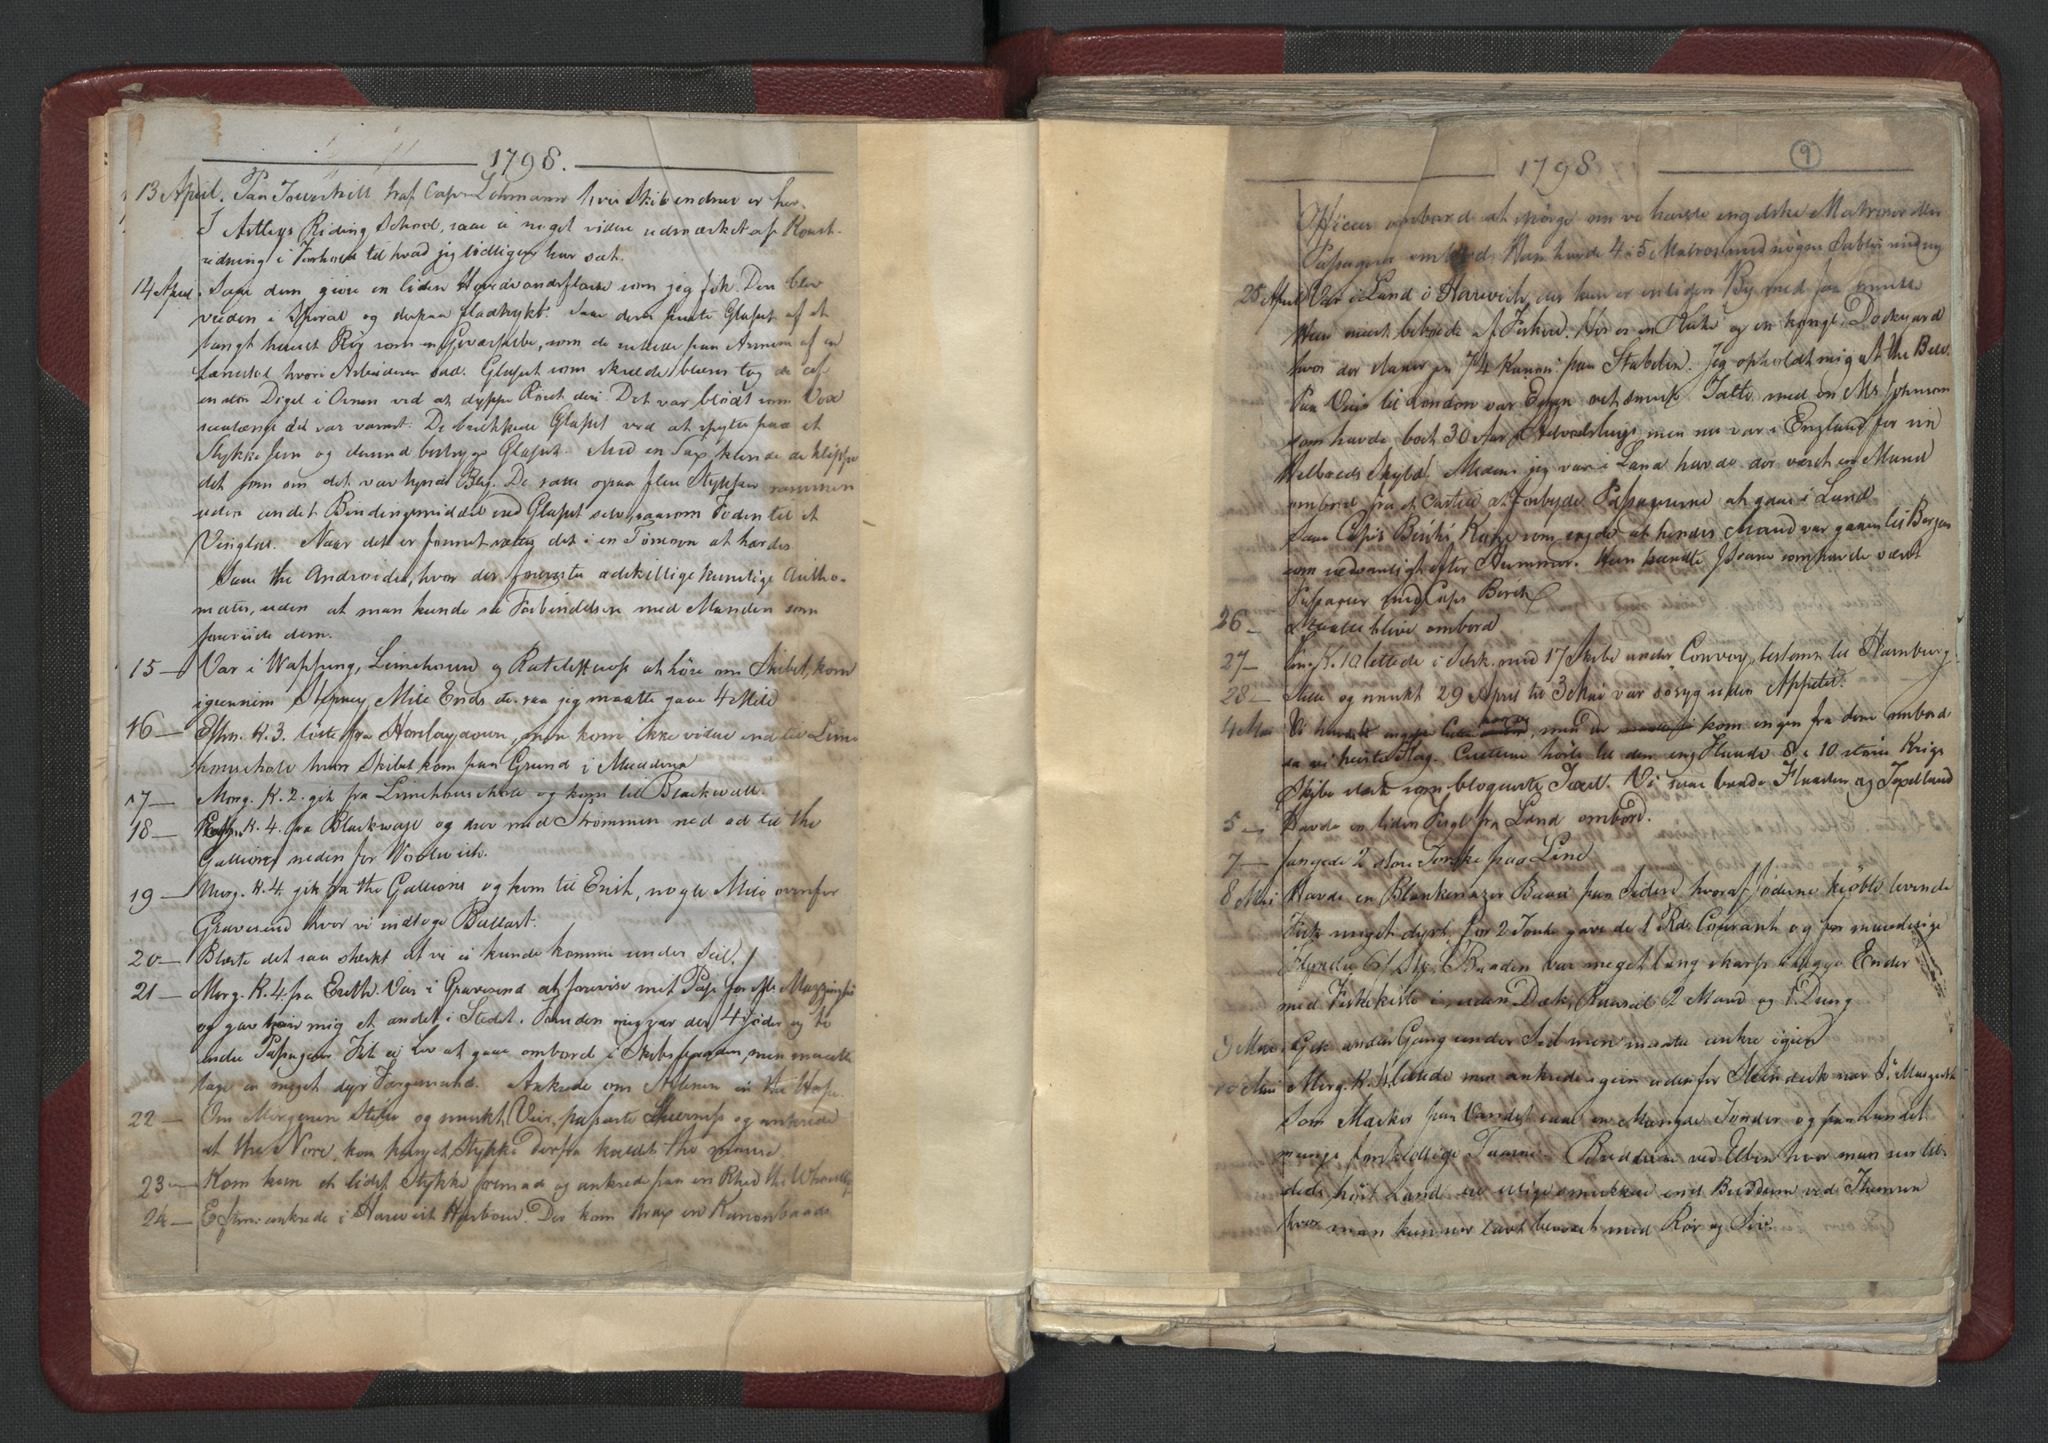 1798.
13 April. Paa Towerhill traf Capn Lohmann hvis Skib endnu er her.
I Astleys Riding School, saae ei noget videre udmærket af Konst-
ridning i Forhold til hvad jeg tidligere har sæt.
14 April. Saae dem giøre en liden Hovedvandsflaske som jeg fik. Den blev
vreden i Spiral og derpaa fladtrykt. Saae dem puste Glaset af et
langt huult Rør som en Geværpibe, som de rullede paa Armene af en
Lænestol hvori Arbeideren sad. Glaset som skulde blæses tog de af
en stor Digel i Ovnen ved at dyppe Røret deri. Det var blødt som Vox
saalænge det var varmt. De brækkede Glaset ved at spytte paa et
Stykke Jern og dermed bestryge Glaset. Med en Sax kunde de klippe
det som om det var tyndt Bly. De satte ogsaa flere Stykker sammen
uden andet Bindingsmiddel end Glaset selv, saasom Foden til et
Viinglas. Naar det er formet sættes det i en Tørreovn at hærdes.
Saae the Androides, hvor der forevistes adskillige kunstige Autho-
mater, uden at man kunde see Forbindelsen med Manden som
foreviiste dem.
15 — Var i Wapping, Limehouse og Ratcliff at høre om Skibet, kom
igiennem Stepney, Mile Ends de saa jeg maatte gaae 4 Mile
16 — Eftm. K. 3. liste fra Horslaydown, men kom ikke videre end til Lime
househole hvor Skibet kom paa Grund i Mudderet
17 — Morg. K. 2. gik fra Limehousehole og kom til Blackwall.
18 — Eftm K. 4. fra Blackwall og drev med Strømmen ned ad til the
Gallions neden for Woolwich.
19 — Morg. K. 4. gik fra the Gallions og kom til Erith, nogle Mile ovenfor
Gravesend hvor vi indtoge Ballast.
20 — Blæste det saa stærkt at vi ei kunde komme under Seil.
21 — Morg. K. 4. fra Erith. Var i Gravesend at forevise mit Pas for Mr Mazzinghi
og gav mig et andet i Stedet. Foruden mig var der 4 Jøder og to
andre Passagerer. Fik ei Lov at gaae ombord i Skibsbaaden, men maatte
tage en meget dyr Færgemand. Ankrede om Aftenen in the Hope.
22 — Om Morgenen Stille og smukt Veir, passerte Sheerness og ankrede
at the Nore, kom kun et Stykke derfra kaldt the
23 — Kom kun et lidet Stykke fremad og ankrede paa en Rhed the
24 — Eftm. ankrede i Harwich Harbour. Der kom strax en Kanonbaads
1798
9
Officeer ombord at spørge om vi havde engelske Matroser eller
Passagerer ombord. Han havde 4 a 5 Matroser med nøgne Sabler med sig
25 April Var i Land i Harwich, der kun er en liden By med faa smukke
Huse meest beboede af Fiskere. Her er en Kirke og en kongl. Dockyard
hvor der staaer en 74 Kanon paa Stabelen. Jeg opholdt mig at the Bell.
Paa Veien til London var Egnen ret smuk. Talte med en Mr Johnson
som havde boet 30 Aar i men nu var i England for sin
Helbreds Skyld. Medens jeg var i Land havde der været en Mand
ombord fra et Cartel at forbyde Passagererne at gaae i Land
Saae Capn Birchs Kone som sagde at hendes Mand var gaaet til Bergen
som sædvanligt efter Hummer. Hun kiendte som havde været
Passager med Capn Birch
26 — Maatte blive ombord
27 — Eng. K. 10 lettede i Selsk. med 17 Skibe under Convoy, bestemte til Hamburg.
28 — Stille og smukt 29 April til 3 Mai var søesyg uden Appetit.
4 Mai Vi men der kom ingen fra dem ombord
da vi heiste Flag. Cutterne hørte til den eng Flaade 8 a 10 store Krigs
Skibe som bloquerte Texel. Vi saae baade Flaaden og Texelland
5 — Havde en liden Fugl fra Land ombord.
7 — fangede 2 store Torske paa Line
8 Mai Havde en Blankeneser Baad paa Siden, hvoraf Jøderne kiøbte levende
Fisk meget dyrt, for 2 Torske gave de 1 Rdr. Courant og for maadelige
Flyndre 6 St. Baaden var meget lang skarp i begge Ender
med Fiskekiste i, uden Dæk, Raaseil 2 Mand og 1 Dreng
9 Mai. Gik anden Gang under Seil men maatte ankre igien
10 Mai Morg. K. lettede men ankrede igien udenfor nær St Margareth
Som Mærker paa Vandet saae en Mængde Tønder og paa Landet
mange forskiellige Taarne. Bredderne ved Elben hvor man seer til-
deels høit Land ere ulige smukkere end Bredderne ved Themsen
hvor man kun seer lavt bevoxet med Rør og Siv.